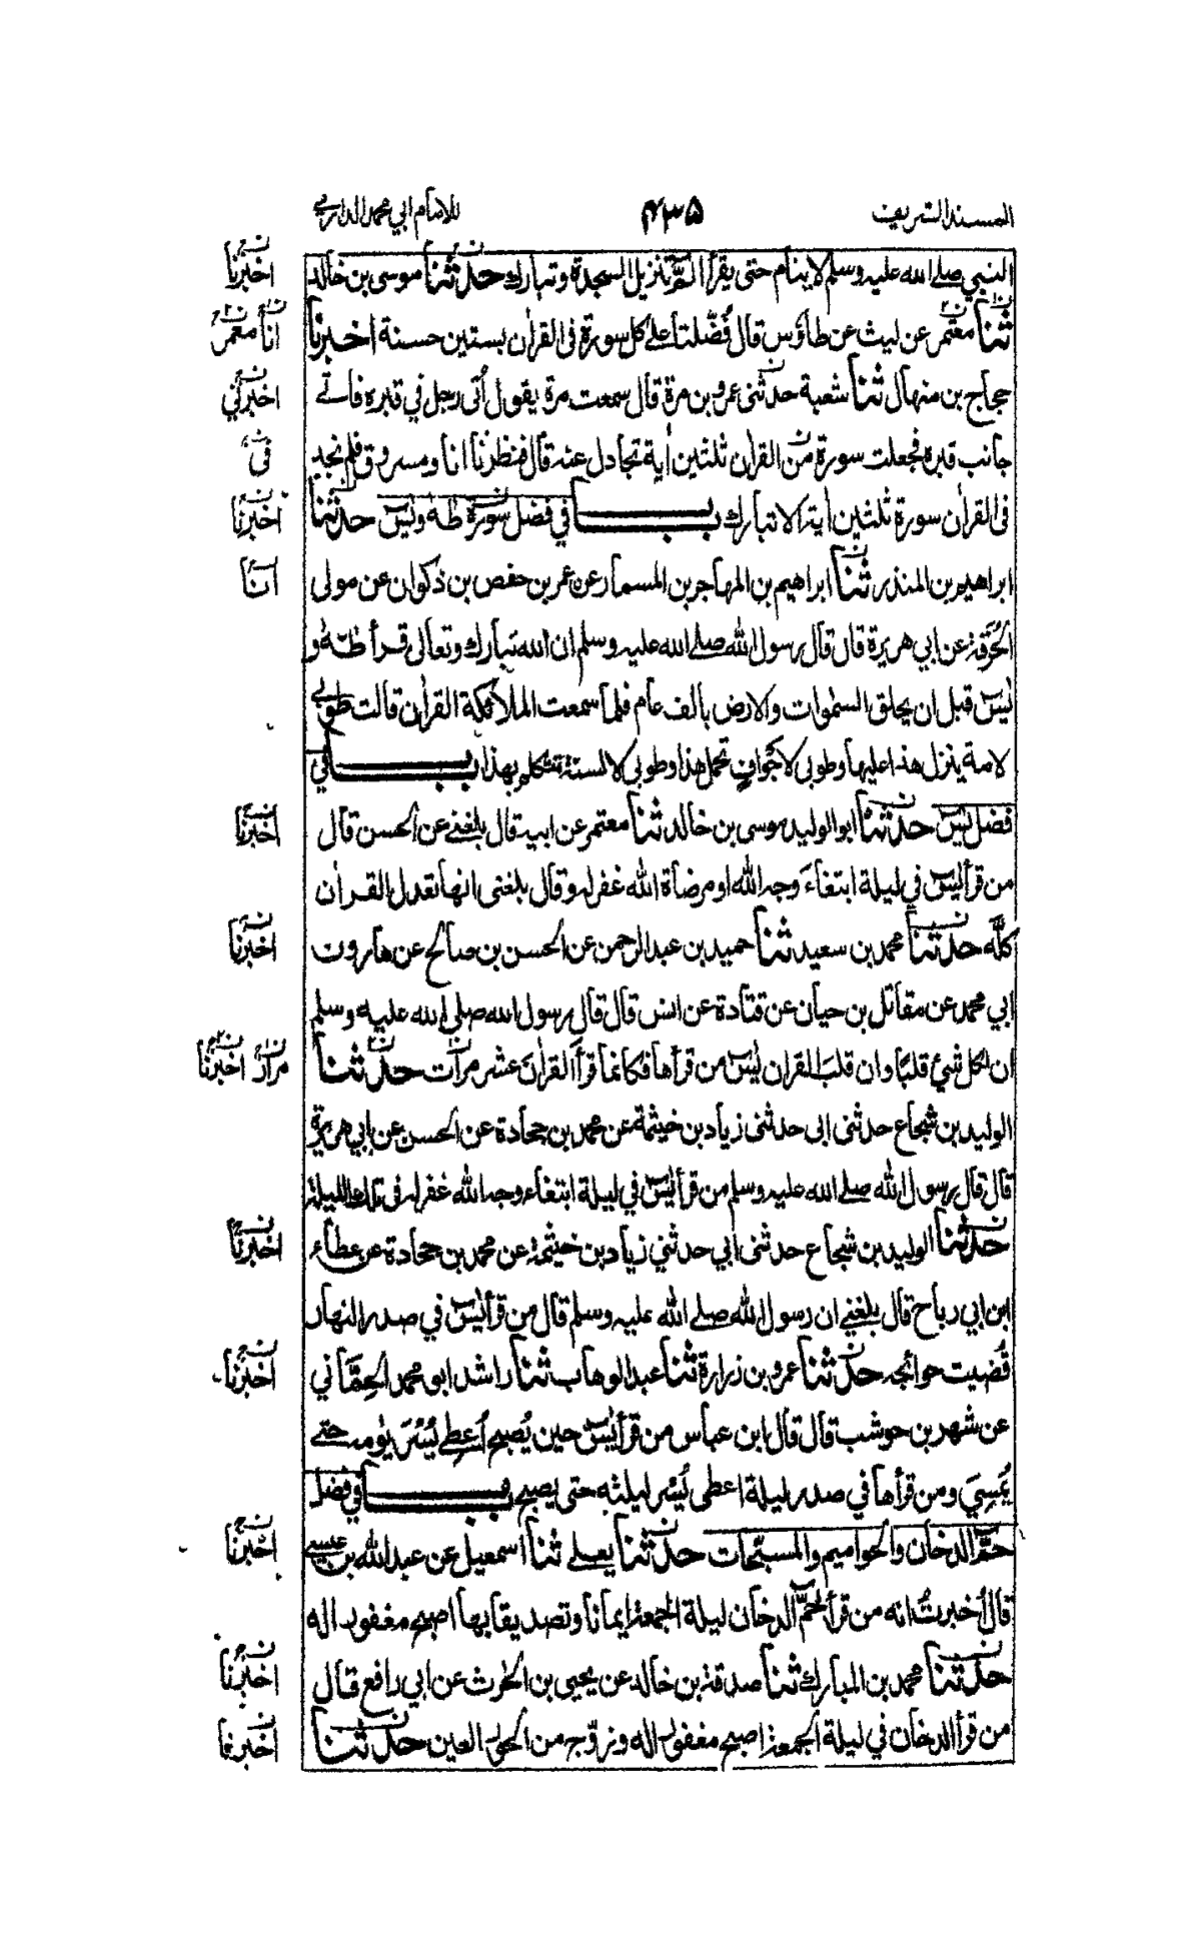 المسند الشريف ٤٣٥ للامام ابي محمد الدارمي
النبي صلى الله عليه وسلم لا ينام حتى يقرأ الٓمّٓ تنزيل السجدة وتبارك حدثنا موسى بن خالد
اخبرنا
ثنا معتمر عن ليث عن طاؤس قال فُضّلتا على كل سورة فى القراٰن بستين حسنة اخبرنا
انا معمر
حجاج بن منهال ثنا شعبة حدثنى عمرو بن مرة قال سمعت مرة يقول اُتى رجل في قبره فاتى
اخبرني
جانب قبره فجعلت سورة من القراٰن ثلثين اٰية تجادل عنه قال فنظرنا انا ومسروق فلم نجد
فى
فى القراٰن سورة ثلثين اية الا تبارك باب في فضل سورة طٰهٰ ويٰسٓ حدثنا
اخبرنا
ابراهيم بن المنذر ثنا ابراهيم بن المهاجر بن المسمار عن عمر بن حفص بن ذكوان عن مولى
انا
الحُرَقة عن ابي هريرة قال قال رسول الله صلى الله عليه وسلم ان الله تبارك وتعالى قرأ طٰهٰ و
يٰسٓ قبل ان يخلق السمٰوات والارض بالف عام فلما سمعت الملائكة القراٰن قالت طوبى
لامة ينزل هذا عليها وطوبى لاجواف تحمل هذا وطوبى لالسنة تتكلم بهذا باب في
فضل يٰسٓ حدثنا ابو الوليد موسى بن خالد ثنا معتمر عن ابيه قال بلغني عن الحسن قال
اخبرنا
من قرأ يٰسٓ في ليلة ابتغاء وجه الله او مرضاة الله غفر له وقال بلغنى انها تعدل القراٰن
كلَّه حدثنا محمد بن سعيد ثنا حميد بن عبد الرحمن عن الحسن بن صالح عن هارون
اخبرنا
ابي محمد عن مقاتل بن حيان عن قتادة عن انس قال قال رسول الله صلى الله عليه وسلم
ان لكل شئ قلبًا وان قلبَ القراٰن يٰسٓ من قرأها فكانما قرأ القراٰنَ عشر مرات حدثنا
مرار اخبرنا
الوليد بن شجاع حدثنى ابى حدثنى زياد بن خيثمة عن محمد بن جحادة عن الحسن عن ابي هريرة
قال قال رسول الله صلى الله عليه وسلم من قرأ يٰسٓ في ليلة ابتغاء وجه الله غفر له فى تلك الليلة
حدثنا الوليد بن شجاع حدثنى ابي حدثني زياد بن خيثمة عن محمد بن جحادة عن عطاء
اخبرنا
ابن ابي رباح قال بلغني ان رسول الله صلى الله عليه وسلم قال من قرأ يٰسٓ في صدر النهار
قُضيت حوائجه حدثنا عمرو بن زرارة ثنا عبد الوهاب ثنا راشد ابو محمد الحِمَّاني
اخبرنا
عن شهر بن حوشب قال قال ابن عباس من قرأ يٰسٓ حين يُصبح اُعطى يُسْرَ يومه حتى
يُمْسِيَ ومن قرأها في صدر ليلة اعطى يُسْر ليلته حتى يصبح باب في فضل
حٰمٓ الدخان والحواميم والمسبّحات حدثنا يعلى ثنا اسمعيل عن عبد الله بن عيسى
اخبرنا
قال اُخبرتُ انه من قرأ حٰمٓ الدخان ليلة الجمعة ايمانا وتصديقا بها اصبح مغفورا له
حدثنا محمد بن المبارك ثنا صدقة بن خالد عن يحيى بن الحٰرث عن ابي رافع قال
اخبرنا
من قرأ الدخان في ليلة الجمعة اصبح مغفورا له وزوّج من الحور العين حدثنا
اخبرنا